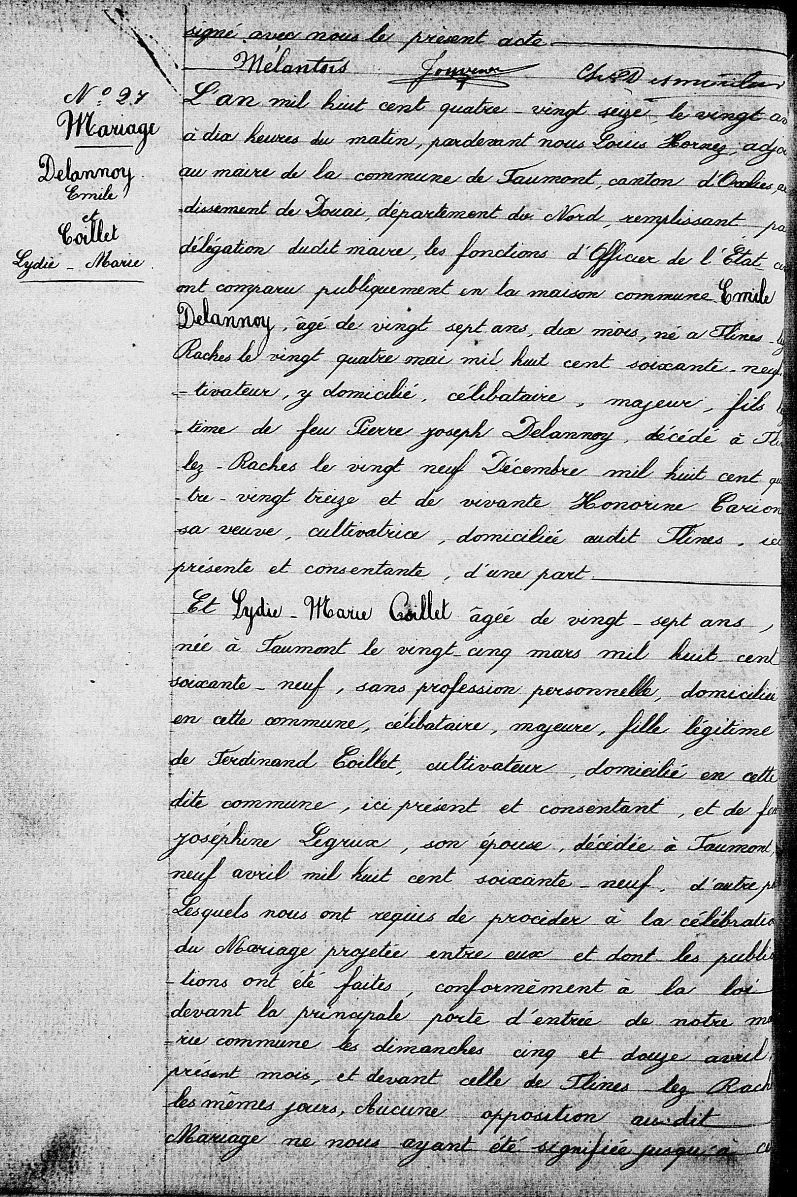 signé avec nous le présent acte.
Mélantois
N° 27
Mariage
Delannoy
Emile
et
Coillet
Lydie - Marie
L'an mil huit cent quatre - vingt seize, le vingt
à dix heures du matin, pardevant nous Louis Hornez, adjo
au maire de la commune de Faumont, canton d'Orchies, ar
-dissement de Douai, département du Nord, remplissant, pa
délégation dudit maire, les fonctions d'Officier de l'Etat ci
ont comparu publiquement en la maison commune Emile
Delannoy, âgé de vingt sept ans, dix mois, né à Flines - le
Raches le vingt quatre mai mil huit cent soixante - neuf
-tivateur, y domicilié, célibataire, majeur, fils
-time de feu Pierre joseph Delannoy, décédé à Fli
lez - Raches le vingt neuf Décembre mil huit cent qu
-tre - vingt treize et de vivante Honorine Carion
sa veuve, cultivatrice, domiciliée audit Flines, ici
présente et consentante, d'une part.
Et Lydie - Marie Coillet âgée de vingt - sept ans,
née à Faumont le vingt - cinq mars mil huit cent
soixante - neuf, sans profession personnelle, domiciliée
en cette commune, célibataire, majeure, fille légitime
de Ferdinand Coillet, cultivateur, domicilié en cette
dite commune, ici présent et consentant, et de feu
joséphine Legrux, son épouse, décédée à Faumont,
neuf avril mil huit cent soixante - neuf, d'autre p
Lesquels nous ont requis de procéder à la célébratio
du Mariage projetée entre eux et dont les publi
-tions ont été faites, conformément à la loi
devant la principale porte d'entrée de notre m
-rie commune les dimanches cinq et douze avril,
présent mois, et devant celle de Flines lez Rach
les mêmes jours, Aucune opposition audit
Mariage ne nous ayant été signifiée jusqu'à c